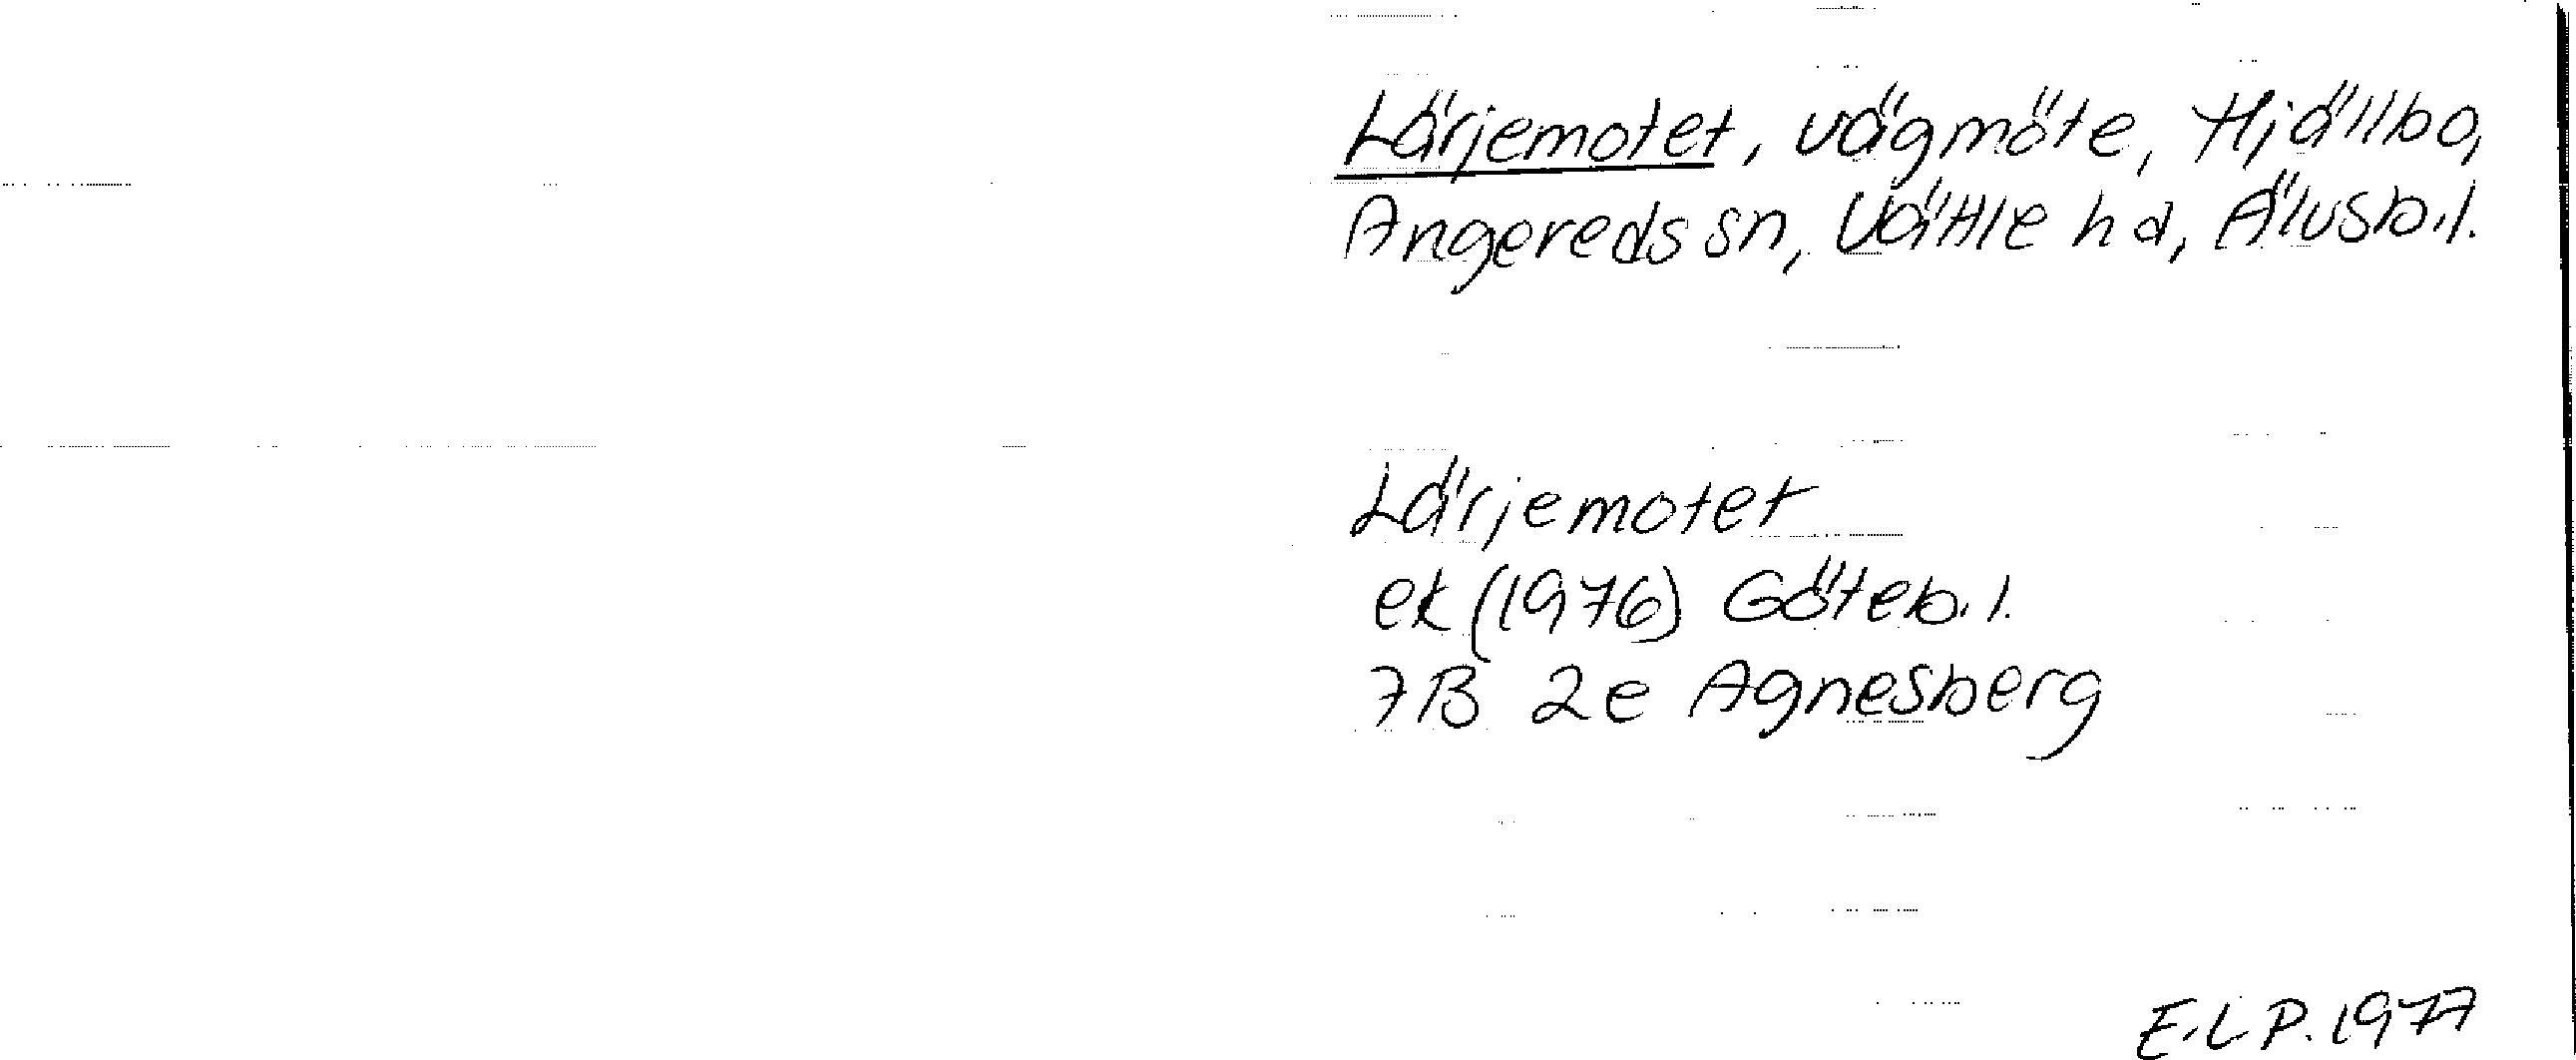 Lärjemotet, vägmöte, Hjällbo,
Angereds sn, Vättle hd, Älvsb.l.
Lärjemotet
ek (1976) Göteb.l.
7B 2e Agnesberg
E.L P. 1977